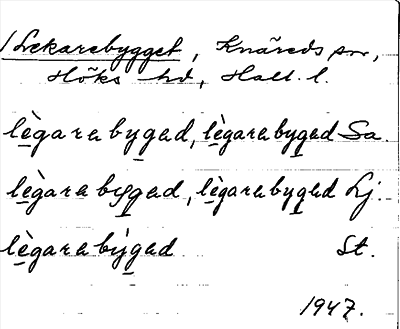 / Lekarebygget, Knäreds sn,
Höks hd, Hall. l.
lègarabyged, lègarabyged Sa.
lègarabyged, lègarabyged Lj.
lègarabyged St.
1947.